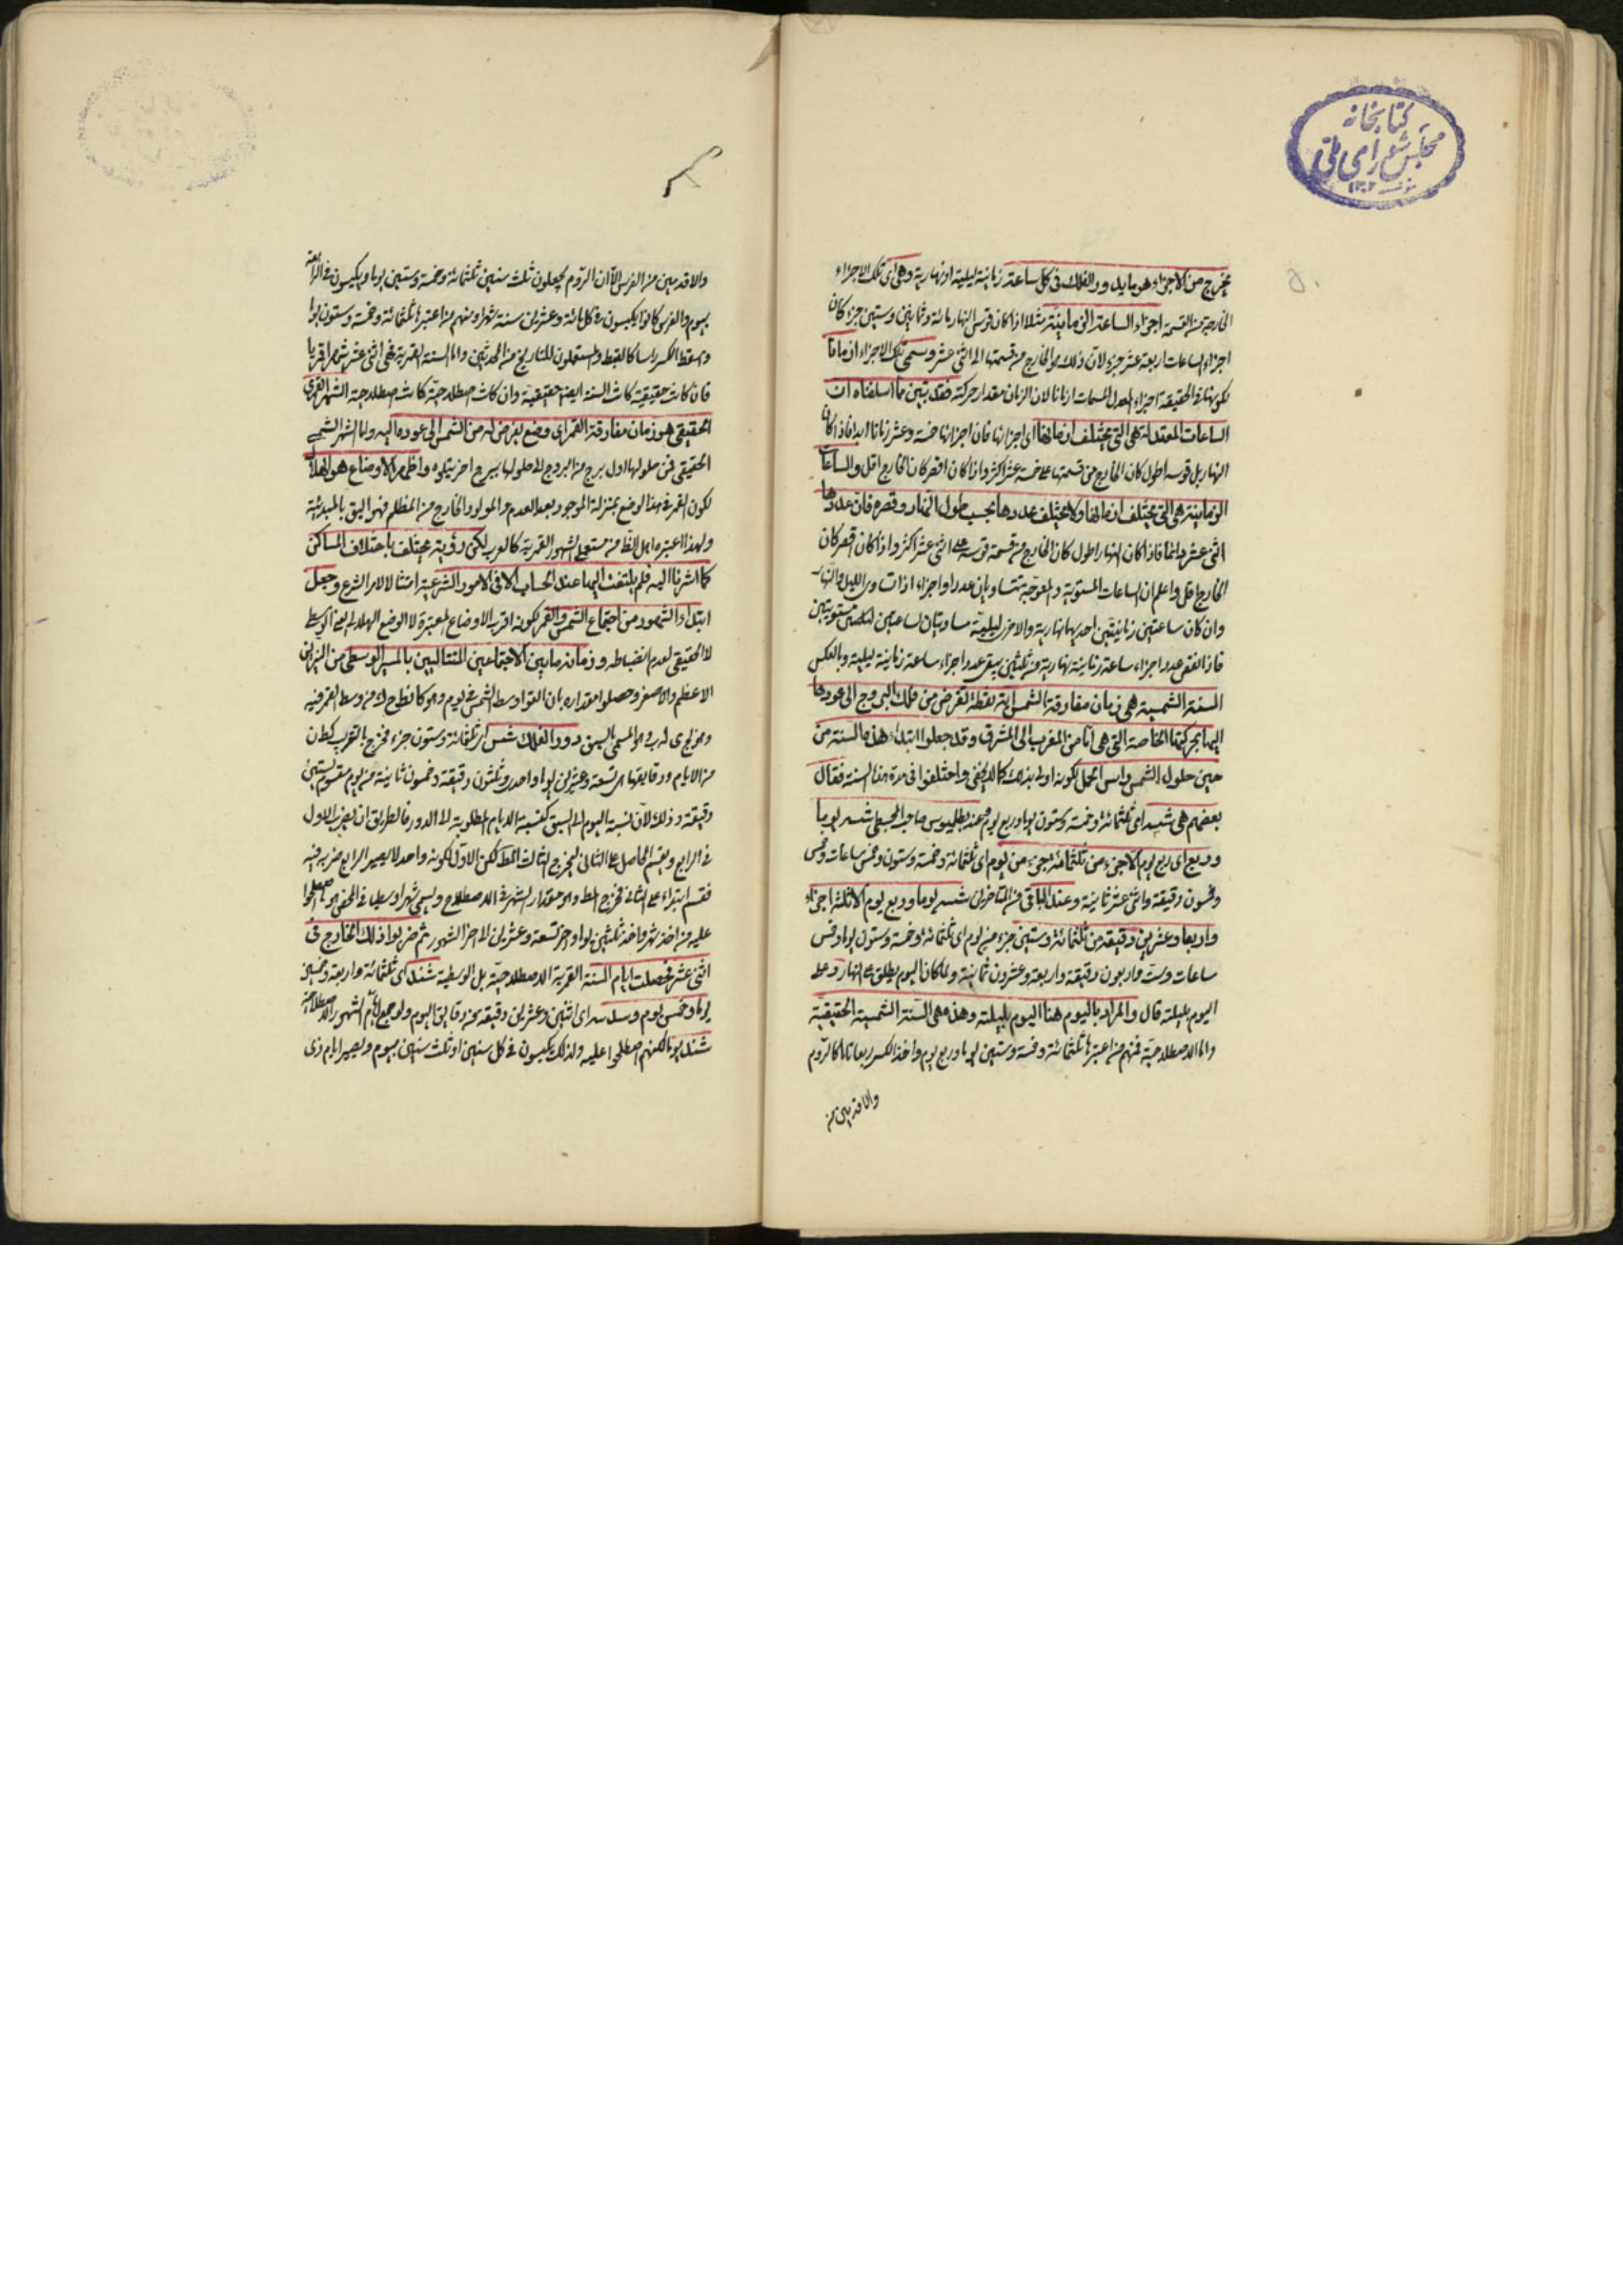 كتابخانه
مجلس شورای ملی
١٣٠٢
يخرج من الاجزاء هو ما يدور الفلك فی كل ساعة زمانية ليلية او نهارية وهی ای تلك الاجزاء
الخارجة من القسمة اجزاء الساعة الزمانية مثلا اذا كان قوس النهار مائة وثمانين وستين جزء كان
اجزاء الساعات اربعة عشر جزء لان ذلك هو الخارج من قسمتها الى اثنی عشر وسمی تلك الاجزاء ازمانا
لكونها فی الحقيقة اجزاء المعدل المسمات ازمانا لان الزمان مقدار حركته فقد تبين مما اسلفناه ان
الساعات المعتدلة هی التی يختلف ازمانها ای اجزائها فان اجزائها خمسة وعشر زمانا ابدا فاذا كان
النهار بل قوسه اطول كان الخارج من قسمتها على خمسة عشر اكثر واذا كان اقصر كان الخارج اقل والساعات
الزمانية هی التی يختلف ازمانها ولا يختلف عددها بحسب طول النهار وقصره فان عددها
اثنی عشر دائما فاذا كان النهار اطول كان الخارج من قسمة قوسه على اثنی عشر اكثر واذا كان اقصر كان
الخارج اقل واعلم ان الساعات المستوية والمعوجة تتساويان عددا واجزاء اذا تساوى الليل والنهار
وان كان ساعتين زمانيتين احديهما نهارية والاخرى ليلية مساويتان لساعتين مستويتين
فاذا نقص عدد اجزاء ساعة زمانية نهارية من ثلثين بقی عدد اجزاء ساعة زمانية ليلية وبالعكس
السنة الشمسية هی زمان مفارقة الشمس اية نقطة تفرض من فلك البروج الى عودها
اليها بحركتها الخاصة التی هی لها من المغرب الى المشرق وقد جعلوا ابتداء هذه السنة من
حين حلول الشمس راس الحمل لكونه اولى بذلك كما لا يخفى واختلفوا فی مدة هذا السنة فقال
بعضهم هی شسه ای ثلثمائة وخمسة وستون يوما وربع يوم وعند بطلميوس صاحب المجسطی شسه يوما
وربع ای ربع يوم الا جزء من ثلثمائة جزء من يوم ای ثلثمائة وخمسة وستون وخمس ساعات وخمس
وخمسون دقيقة واثنی عشر ثانية وعند الباقی من المتاخرين شسه يوما وربع يوم الا ثلثة اجزاء
واربعا وعشرين دقيقة من ثلثمائة وستين جزء من يوم ای ثلثمائة وخمسة وستون يوما وخمس
ساعات وست واربعون دقيقة واربعة وعشرون ثانية ولما كان اليوم يطلق على النهار وعلى
اليوم بليلته قال والمراد باليوم هنا اليوم بليلته وهذه هی السنة الشمسية الحقيقية
واما الاصطلاحية فمنهم من اعتبرها ثلثمائة وخمسة وستين يوما وربع يوم واخذ الكسر ربعا تاما كالروم
والاقدمين من
والاقدمين من الفرس الا ان الروم يجعلون ثلث سنين ثلثمائة وخمسة وستين يوما ويكبسون فی الرابعة
بيوم والفرس كانوا يكبسون فی كل مائة وعشرين سنة شهرا ومنهم من اعتبرها ثلثمائة وخمسة وستون يوما
واسقط الكسر راسا كالقبط والمستعملون للتاريخ من المحدثين واما السنة القمرية فهی اثنی عشر شهرا قمريا
فان كانت حقيقية كانت السنة ايضا حقيقية وان كانت اصطلاحية كانت اصطلاحية الشهر القمری
الحقيقی هو زمان مفارقة القمر ای وضع يفرض له من الشمس الى عوده اليه واما الشهر الشمسی
الحقيقی فمن حلولها اول برج من البروج الى حلولها برج اخر يتلوه واظهر الاوضاع هو الهلال
لكون القمر فی هذا الوضع بمنزلة الموجود بعد العدم والمولود الخارج من الظلم فهو اليق بالمبدئية
ولهذا اعتبره اهل الظاهر من مستعملی الشهور القمرية كالعرب لكن رؤيته تختلف باختلاف المساكن
كما اشرنا اليه فلم يلتفت اليها عند الحساب الا فی الامور الشرعية امتثالا لامر الشرع وجعل
ابتداء الشهور من اجتماع الشمس والقمر لكونه اقرب الاوضاع المعتبرة الى الوضع الهلالی يعنی الوسط
لا الحقيقی لعدم انضباطه وزمان ما بين الاجتماعين المتتاليين بالمسير الوسطی من النيرين
الاعظم والاصغر وحصلوا مقداره بان القوا وسط الشمس فی يوم وهو كانطح له من وسط القمر فيه
وهو يج ی له ب فهو المسمى بالسبق دور الفلك شس ای ثلثمائة وستون جزء فخرج بالتقريب كط لا ن
من الايام ودقايقها ای تسعة وعشرين يوما واحد وثلثون دقيقة وخمسون ثانية من يوم مقسوم بستين
دقيقة وذلك لان نسبة اليوم الى السبق كنسبة الايام المطلوبة الى الدور فالطريق ان يضرب الاول
فی الرابع ويقسم الحاصل على الثانی ليخرج الثالث المط لكن الاول لكونه واحدا لا يصير الرابع بضربه فيه
فقسم ابتداء على الثانی فخرج المط وهو مقدار الشهر فی الاصطلاح ويسمى شهرا وسطيا فی الحقيقی هو ما اصطلحوا
عليه من اخذ شهر واخذ ثلثين يوما واخر تسعة وعشرين الى اخر الشهور ثم ضربوا ذلك الخارج فی
اثنی عشر فحصلت ايام السنة القمرية الاصطلاحية بل الوسطية شند ای ثلثمائة واربعة وخمسين
يوما وخمس يوم وسدسه ای اثنين وعشرين دقيقة من دقايق اليوم ولو جمع ايام الشهور الاصطلاحية
شند يوما لكنهم اصطلحوا عليه ولذلك يكبسون فی كل سنتين او ثلث سنين بيوم ويصير ايام ذی